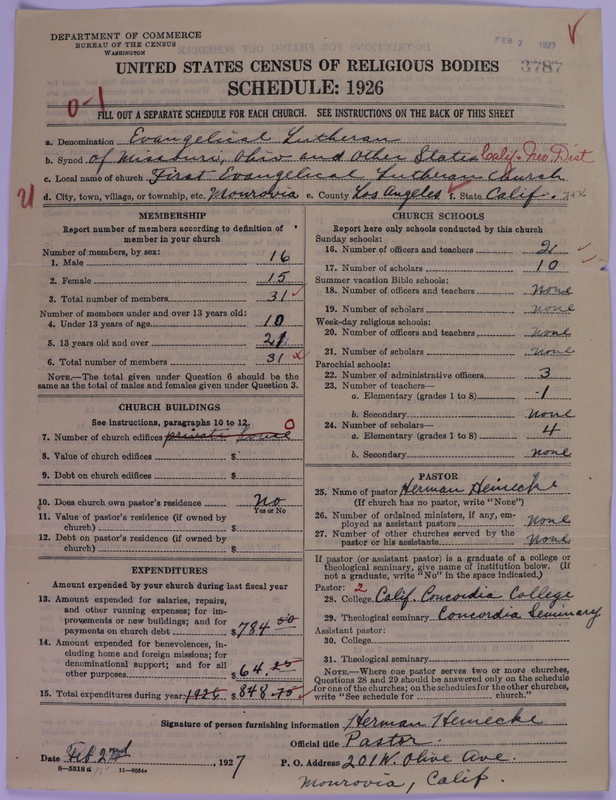 DEPARTMENT OF COMMERCE
BUREAU OF THE CENSUS
WASHINGTON
FEB 7 1927
3787
UNITED STATES CENSUS OF RELIGIOUS BODIES
SCHEDULE: 1926
0-1
FILL OUT A SEPARATE SCHEDULE FOR EACH CHURCH. SEE INSTRUCTIONS ON THE BACK OF THIS SHEET
a. Denomination Evangelical Lutheran
b. Synod of Missouri, Ohio and Other States Calif. Nev. Dist
c. Local name of church First Evangelical Lutheran Church
d. City, town, village, or township, etc. Monrovia e. County Los Angeles f. State Calif.
MEMBERSHIP
Report number of members according to definition of member in your church
Number of members, by sex:
1. Male 16
2. Female 15
3. Total number of members 31
Number of members under and over 13 years old:
4. Under 13 years of age 10
5. 13 years old and over 21
6. Total number of members 31
NOTE.—The total given under Question 6 should be the
same as the total of males and females given under Question 3.
CHURCH BUILDINGS
See instructions, paragraphs 10 to 12
7. Number of church edifices private house 0
8. Value of church edifices $
9. Debt on church edifices $
10. Does church own pastor's residence No
Yes or No
11. Value of pastor's residence (if owned by
church) $
12. Debt on pastor's residence (if owned by
church) $
EXPENDITURES
Amount expended by your church during last fiscal year
13. Amount expended for salaries, repairs,
and other running expenses; for im-
provements or new buildings; and for
payments on church debt $784.50
14. Amount expended for benevolences, in-
cluding home and foreign missions; for
denominational support; and for all
other purposes $64.25
15. Total expenditures during year 1925 $848.75
CHURCH SCHOOLS
Report here only schools conducted by this church
Sunday schools:
16. Number of officers and teachers 2
17. Number of scholars 10
Summer vacation Bible schools:
18. Number of officers and teachers none
19. Number of scholars none
Week-day religious schools:
20. Number of officers and teachers none
21. Number of scholars none
Parochial schools:
22. Number of administrative officers 3
23. Number of teachers—
a. Elementary (grades 1 to 8) 1
b. Secondary none
24. Number of scholars—
a. Elementary (grades 1 to 8) 4
b. Secondary none
PASTOR
25. Name of pastor Herman Heinecke
(If church has no pastor, write "None")
26. Number of ordained ministers, if any, em-
ployed as assistant pastors none
27. Number of other churches served by the
pastor or his assistants none
If pastor (or assistant pastor) is a graduate of a college or
theological seminary, give name of institution below. (If
not a graduate, write "No" in the space indicated.)
Pastor: 2
28. College Calif. Concordia College
29. Theological seminary Concordia Seminary
Assistant pastor:
30. College
31. Theological seminary
NOTE.—Where one pastor serves two or more churches,
Questions 28 and 29 should be answered only on the schedule
for one of the churches; on the schedules for the other churches,
write "See schedule for church."
Signature of person furnishing information Herman Heinecke
Official title Pastor
Date Feb 2nd, 1927 P. O. Address 201 W. Olive Ave.
8-5518a 11-9584
Monrovia, Calif.